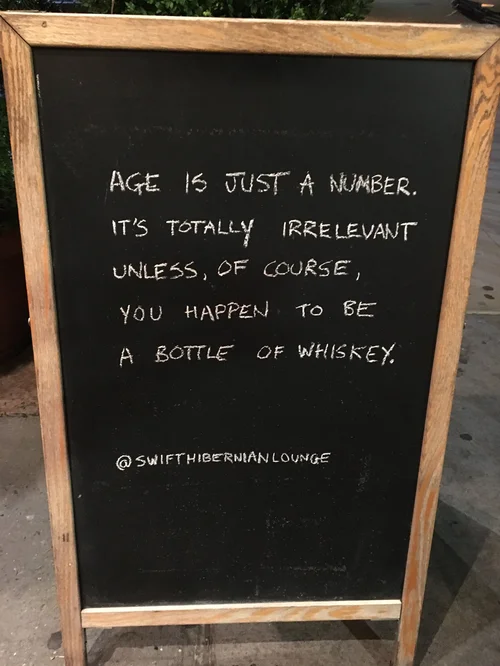 AGE IS JUST A NUMBER.
IT'S TOTALLY IRRELEVANT
UNLESS, OF COURSE,
YOU HAPPEN TO BE
A BOTTLE OF WHISKEY.
@SWIFTHIBERNIANLOUNGE